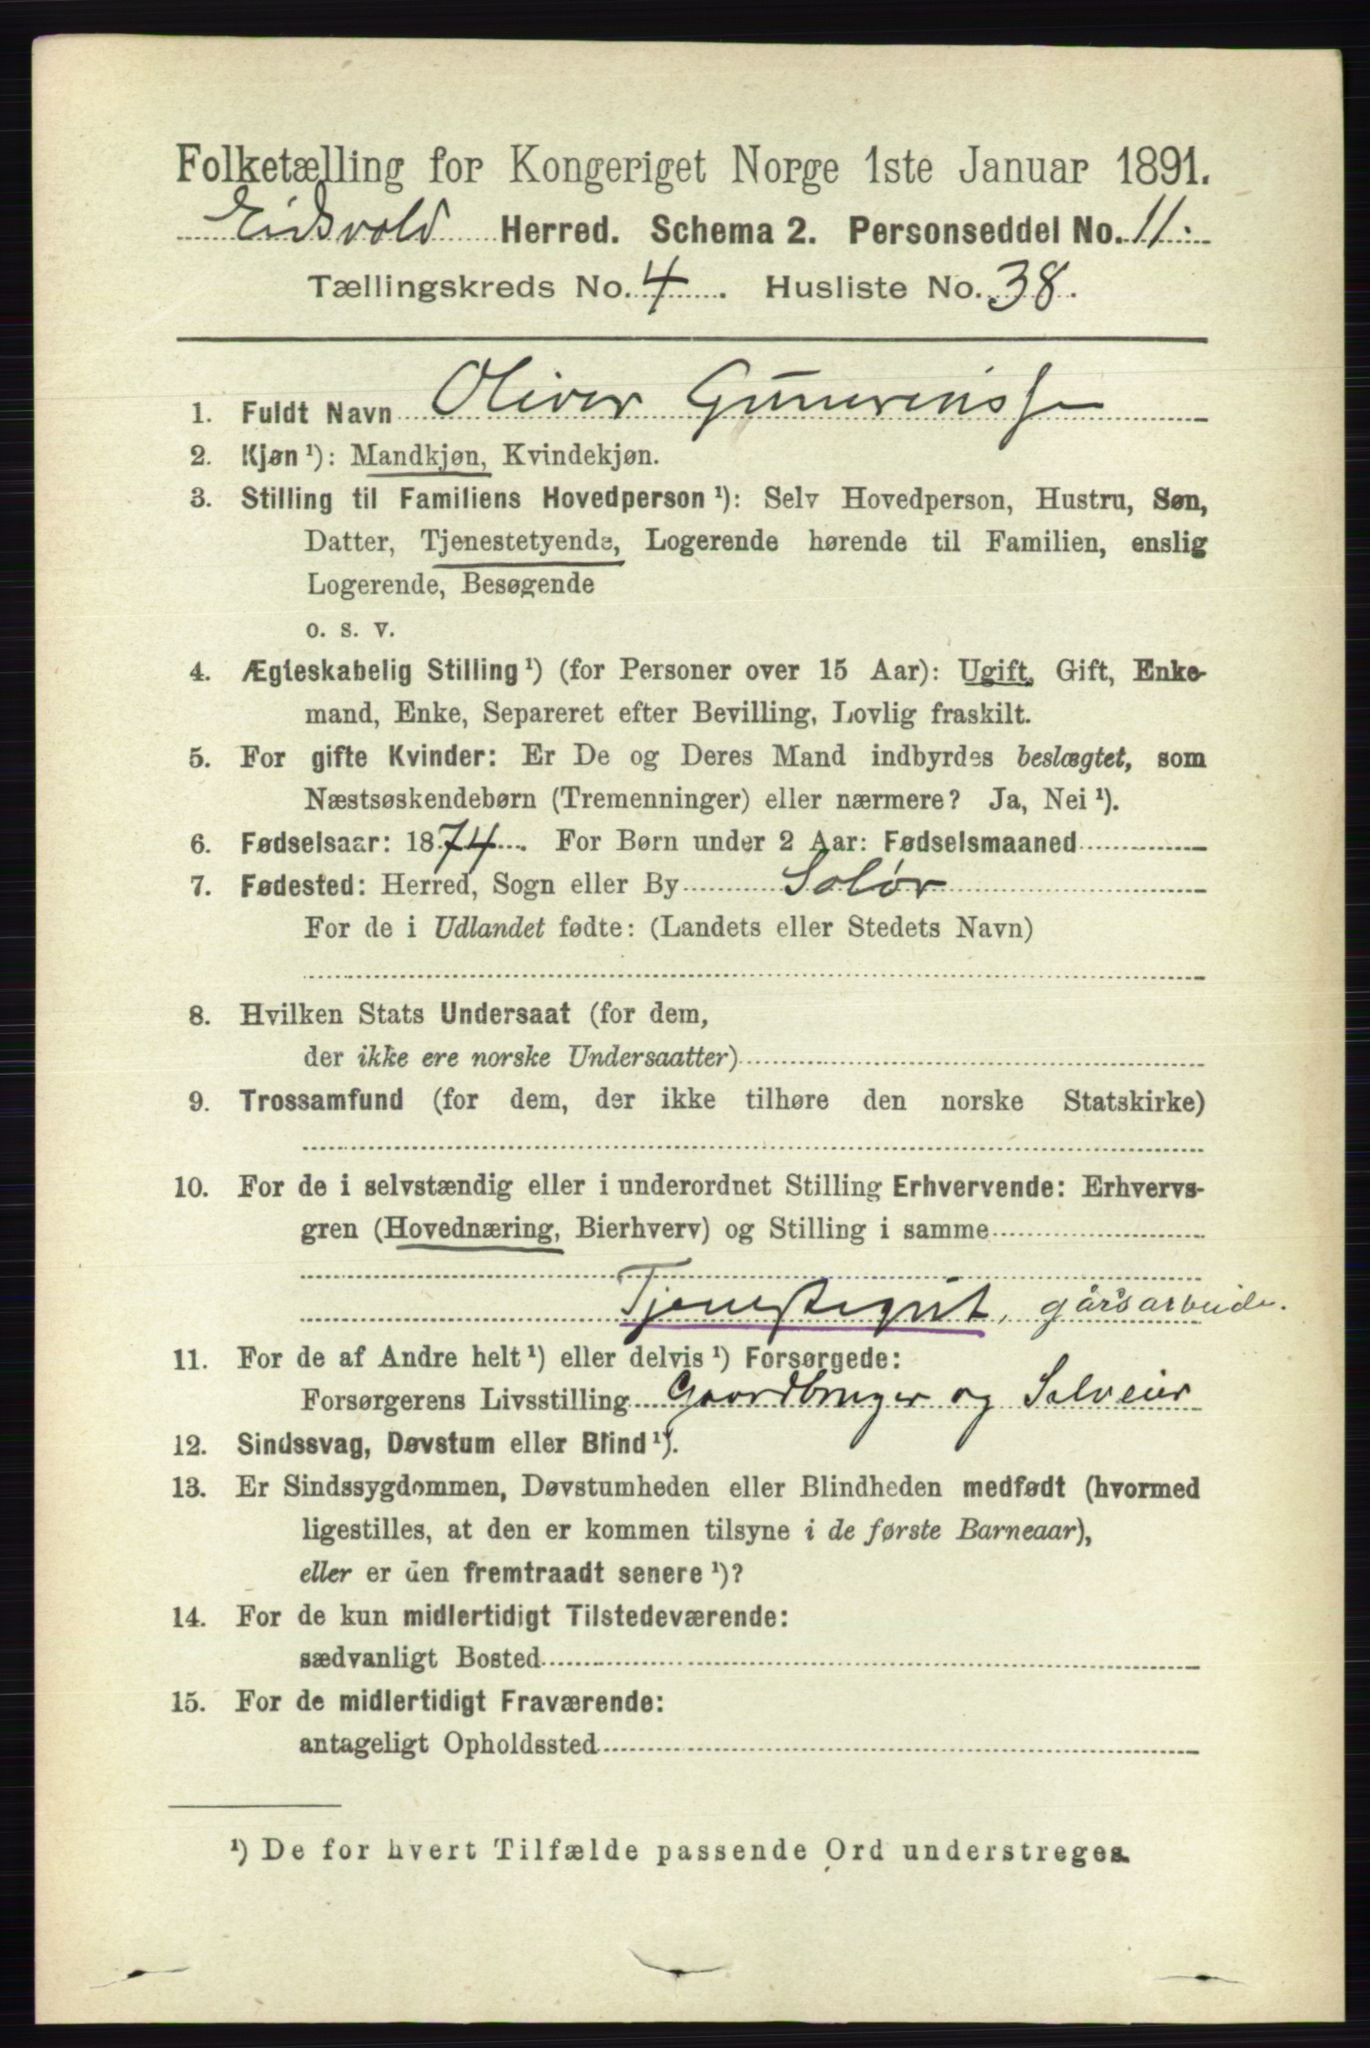 Folketælling for Kongeriget Norge 1ste Januar 1891.
Eidsvold Herred. Schema 2. Personseddel No. 11.
Tællingskreds No. 4. Husliste No. 38.
1. Fuldt Navn Oliver
2. Kjøn ¹): Mandkjøn, Kvindekjøn.
3. Stilling til Familiens Hovedperson ¹): Selv Hovedperson, Hustru, Søn,
Datter, Tjenestetyende, Logerende hørende til Familien, enslig
Logerende, Besøgende
o. s. v.
4. Ægteskabelig Stilling ¹) (for Personer over 15 Aar): Ugift, Gift, Enke-
mand, Enke, Separeret efter Bevilling, Lovlig fraskilt.
5. For gifte Kvinder: Er De og Deres Mand indbyrdes beslægtet, som
Næstsøskendebørn (Tremenninger) eller nærmere? Ja, Nei ¹).
6. Fødselsaar: 1874. For Børn under 2 Aar: Fødselsmaaned
7. Fødested: Herred, Sogn eller By Solør
For de i Udlandet fødte: (Landets eller Stedets Navn)
8. Hvilken Stats Undersaat (for dem,
der ikke ere norske Undersaatter)
9. Trossamfund (for dem, der ikke tilhøre den norske Statskirke)
10. For de i selvstændig eller i underordnet Stilling Erhvervende: Erhvervs-
gren (Hovednæring, Bierhverv) og Stilling i samme
Tjenestegut, gårsarbeide.
11. For de af Andre helt ¹) eller delvis ¹) Forsørgede:
Forsørgerens Livsstilling Gaardbruger og Selveier
12. Sindssvag, Døvstum eller Blind ¹).
13. Er Sindssygdommen, Døvstumheden eller Blindheden medfødt (hvormed
ligestilles, at den er kommen tilsyne i de første Barneaar),
eller er den fremtraadt senere ¹)?
14. For de kun midlertidigt Tilstedeværende:
sædvanligt Bosted
15. For de midlertidigt Fraværende:
antageligt Opholdssted
¹) De for hvert Tilfælde passende Ord understreges.